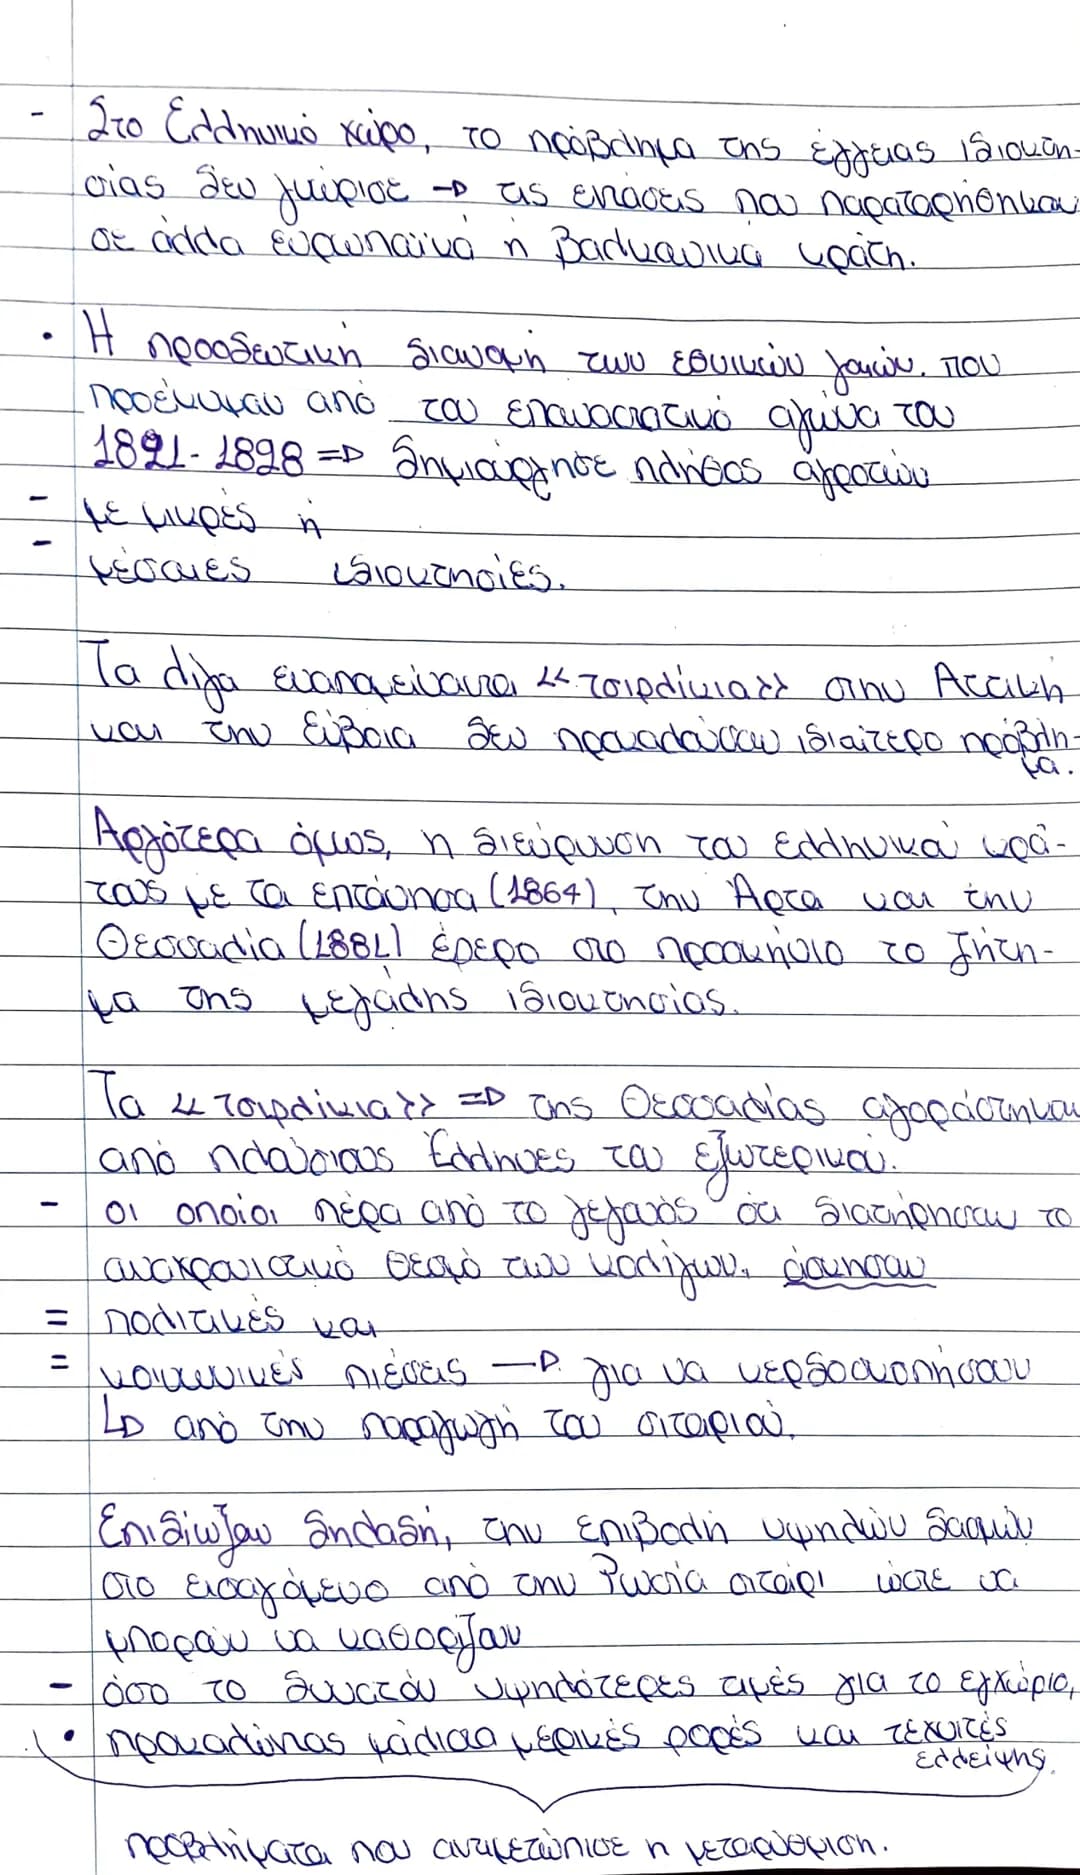 - Στο Ελληνικό χώρο, το πρόβλημα της έγγειας ιδιοκτη-
σίας δεν γνώρισε → τις εντάσεις που παρατηρήθηκαν
σε άλλα ευρωπαϊκά ή βαλκανικά κράτη.
• Η προοδευτική διανομή των εθνικών γαιών, που
προέκυψαν από του επαναστατικό αγώνα του
1821-1828 ⇒ δημιούργησε πλήθος αγροτών
- με μικρές ή
- μέσαιες ιδιοκτησίες.
Τα λίγα εναπομείναντα <<τσιφλίκια>> στην Αττική
και την Εύβοια δεν προκαλούσαν ιδιαίτερο πρόβλη-
μα.
Αργότερα όμως, η διεύρυνση του ελληνικού κρά-
τους με τα επτάνησα (1864), την Άρτα και την
Θεσσαλία (1881) έφερε στο προσκήνιο το ζήτη-
μα της μεγάλης ιδιοκτησίας.
Τα <<τσιφλίκια>> ⇒ της Θεσσαλίας αγοράστηκαν
από πλούσιους Έλληνες του εξωτερικού.
- οι οποίοι πέρα από το γεγονός ότι διατήρησαν το
αναχρονιστικό θεσμό των κολίγων, άσκησαν
= πολιτικές και
= κοινωνικές πιέσεις → για να κερδοσκοπήσουν
↳ από την παραγωγή του σιταριού.
Επιδίωξαν δηλαδή, την επιβολή υψηλών δασμών
στο εισαγόμενο από την Ρωσία σιτάρι ώστε να
μπορούν να καθορίζουν
- όσο το δυνατόν υψηλότερες τιμές για το εγχώριο,
• προκαλώντας μάλιστα μερικές φορές και τεχνιτές
ελλείψης.
προβλήματα που αντιμετώπισε η μεταρρύθμιση.